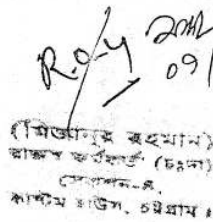 R.O-y
09/
(মিজানুর রহমান)
রাজস্ব কর্মকর্তা (চঃদাঃ)
সেকশন-৪
কাস্টম হাউস, চট্টগ্রাম।